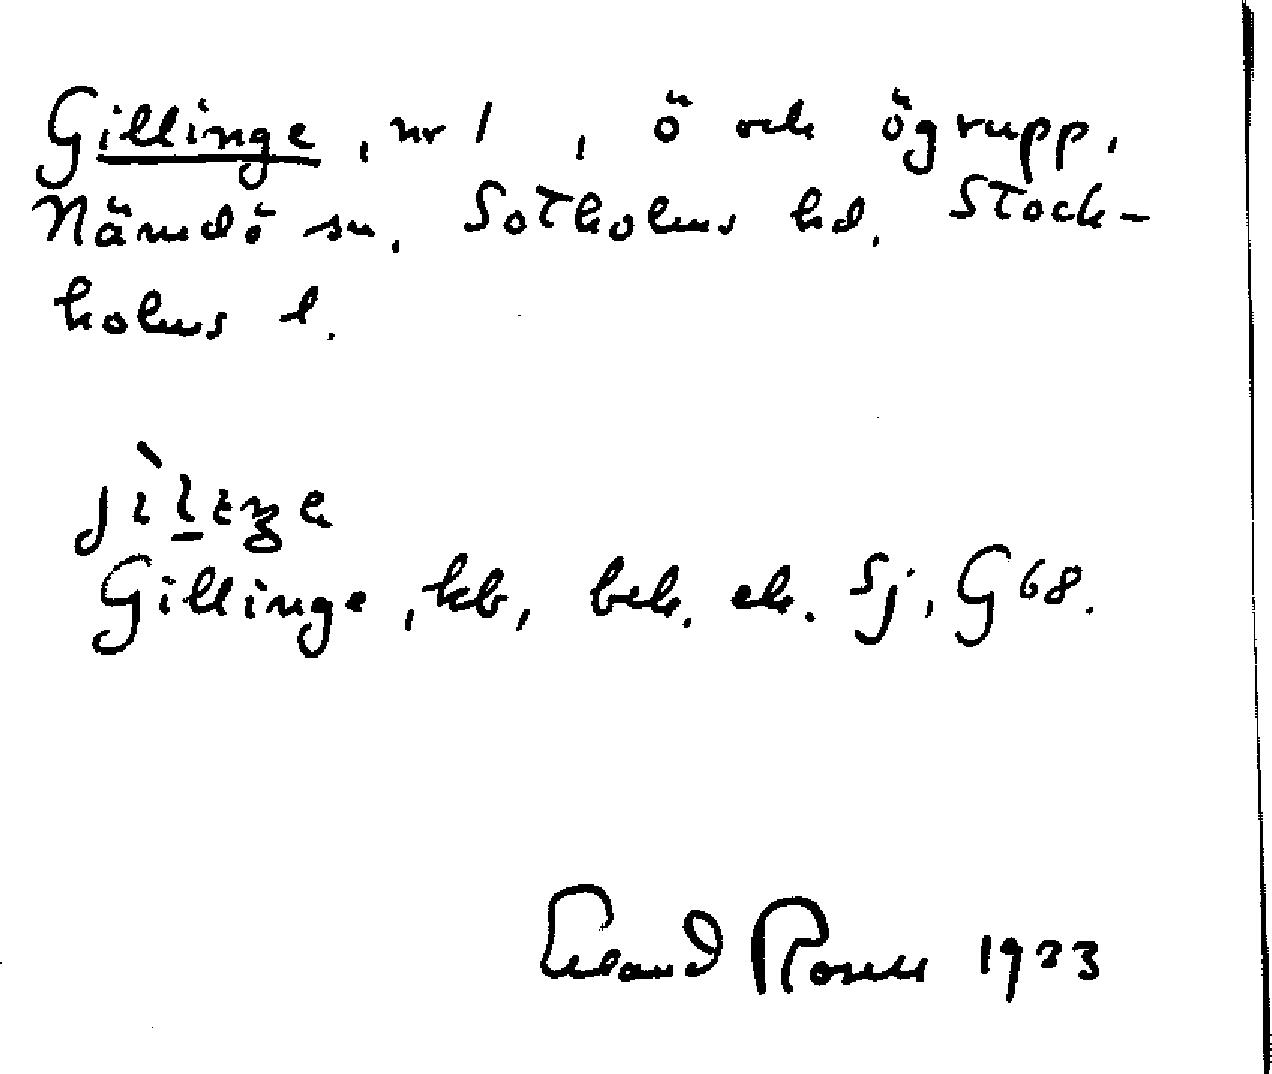 Gillinge, nr 1, ö och ögrupp,
Nämdö sn. Sotholms hd. Stock-
holms l.
Gillinge, kb, bek. ek. Sj, G 68.
Erland Rosell 1973